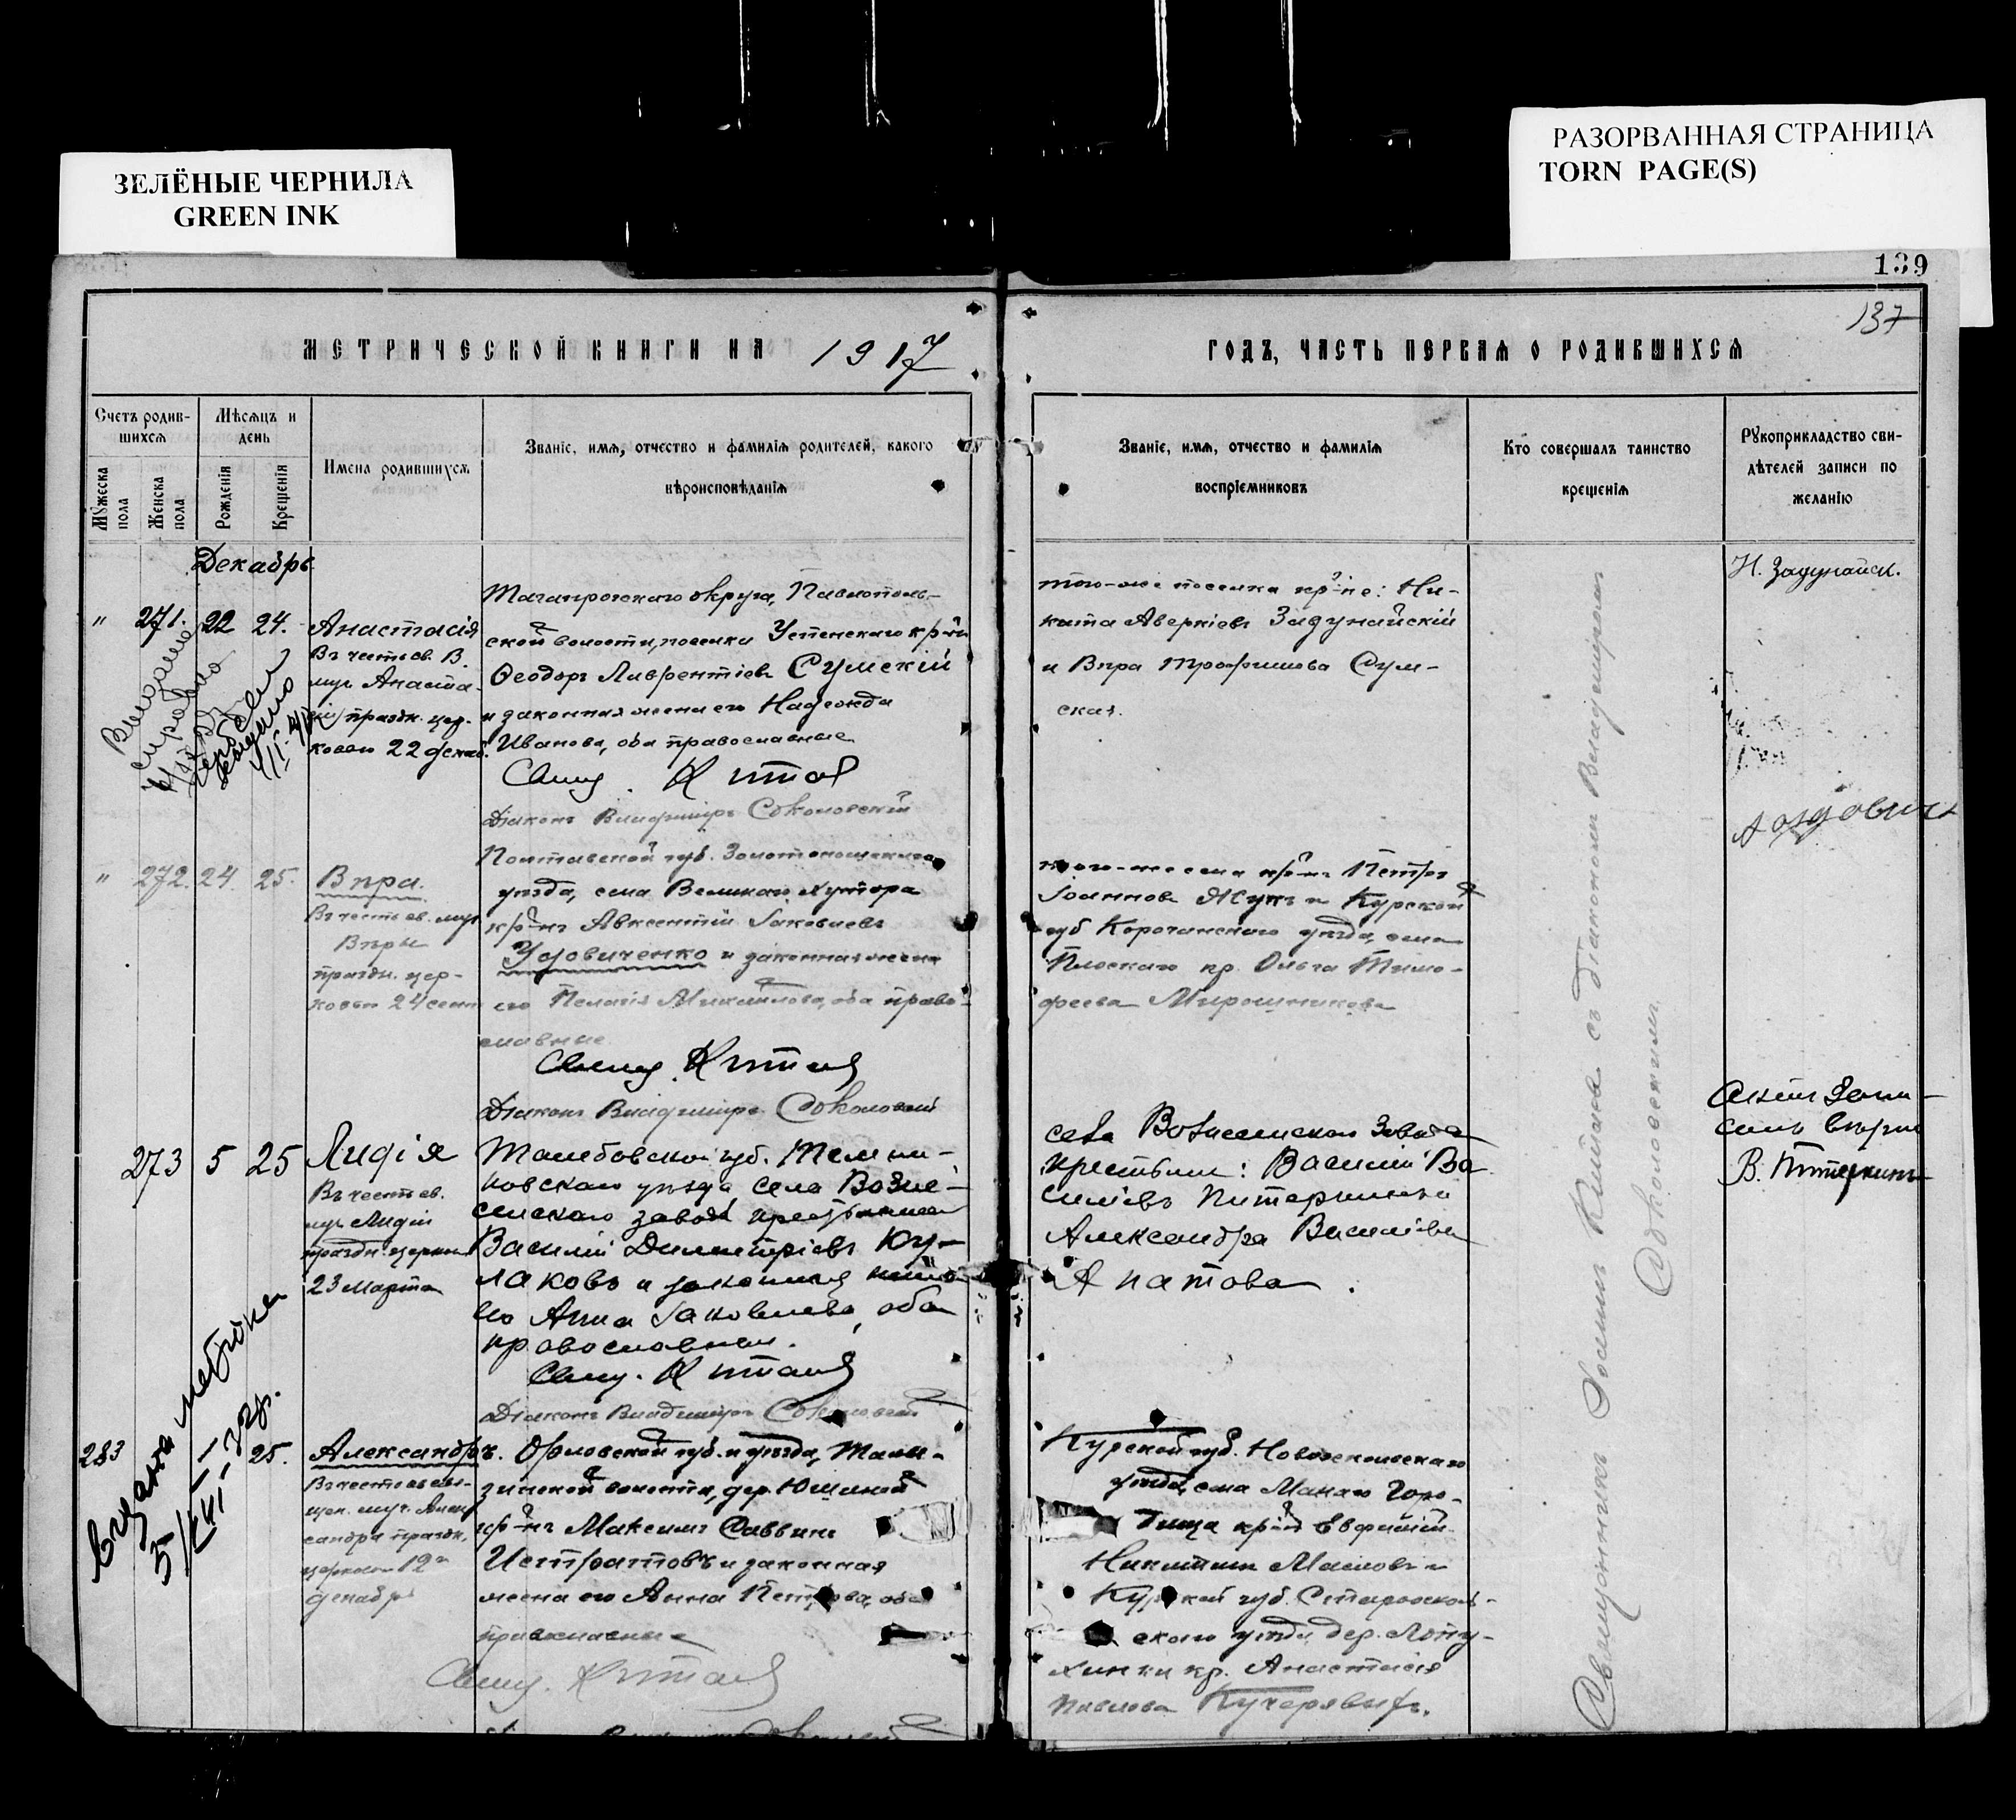 ЗЕЛЁНЫЕ ЧЕРНИЛА
GREEN INK
РАЗОРВАННАЯ СТРАНИЦА
TORN PAGE(S)
139
137
МЕТРИЧЕСКОЙ КНИГИ НА 1917
ГОДЪ, ЧАСТЬ ПЕРВАЯ О РОДИВШИХСЯ
Счетъ родив-
шихся
Мѣсяцъ и
день
Мужеска
пола
Женска
пола
Рожденія
Крещенія
Имена родившихся.
Званіе, имя, отчество и фамилія родителей, какого
вѣроисповѣданія
Званіе, имя, отчество и фамилія
воспріемниковъ
Кто совершалъ таинство
крещенія
Рукоприкладство сви-
дѣтелей записи по
желанію
Декабрь
" 271. 22 24. Анастасія
Въ честь св. В.
муч. Анаста-
сіи, праздн. цер-
ковью 22 декаб.
Таганрогскаго округа, Павлополь-
ской волости, поселка Успенскаго кр-нъ
Ѳеодоръ Лаврентіевъ Сумскій
и законная жена его Надежда
Иванова, оба православные
Свящ. Китаев
Діаконъ Владиміръ Соколовскій
того-же поселка кр-не: Ни-
кита Аверкіевъ Задунайскій
и Вѣра Трофимова Сум-
ская.
Н. Задунайск.
" 272. 24. 25. Вѣра.
Въ честь св. муч.
Вѣры
праздн. цер-
ковью 24 сент
Полтавской губ. Золотоношскаго
уѣзда, села Великаго Хутора
кр-нъ Авксентій Іаковлевъ
Удовиченко и законная жена
его Пелагія Михаилова, оба право-
славные
Свящ. Китаев
Діаконъ Владиміръ Соколовскій
того-же села кр-нъ Петръ
Іоанновъ Жукъ и Курской
губ Корочанскаго уѣзда, села
Плоскаго кр. Ольга Тимо-
феева Мирошникова
273 5 25 Лидія
Въ честь св.
муч. Лидіи
праздн. церковью
23 Марта
Тамбовской губ. Темни-
ковскаго уѣзда села Возне-
сенскаго завода крестьянинъ
Василій Димитріевъ Ку-
лаковъ и законная жена
его Анна Іаковлева, оба
православные.
Свящ. Китаев
Діаконъ Владиміръ Соколовскій
села Вознесенскаго Завода
крестьяне: Василій Ва
сильевъ Питеркинъ и
Александра Васильева
Апатова.
В. Питеркинъ
Выдана метрика
283 25. Александръ.
Въ честь свя-
щен. муч. Алек
сандра праздн.
церковью 12го
декабря
Орловской губ. и уѣзда,
волости, дер. Юшиной
кр-нъ Максимъ Саввинъ
Истратовъ и законная
жена его Анна Петрова, оба
православные
Свящ. Китаев
Курской губ. Новооскольскаго
уѣзда, села Малаго Горо-
дища кр-нъ Евфимій
Никитинъ Масловъ и
Курской губ. Старооскол-
скаго уѣзда, дер. Лопу-
хинки кр. Анастасія
Павлова Кучерявыхъ.
Священникъ Іосифъ Китаевъ съ діакономъ Владиміромъ
Соколовскимъ.